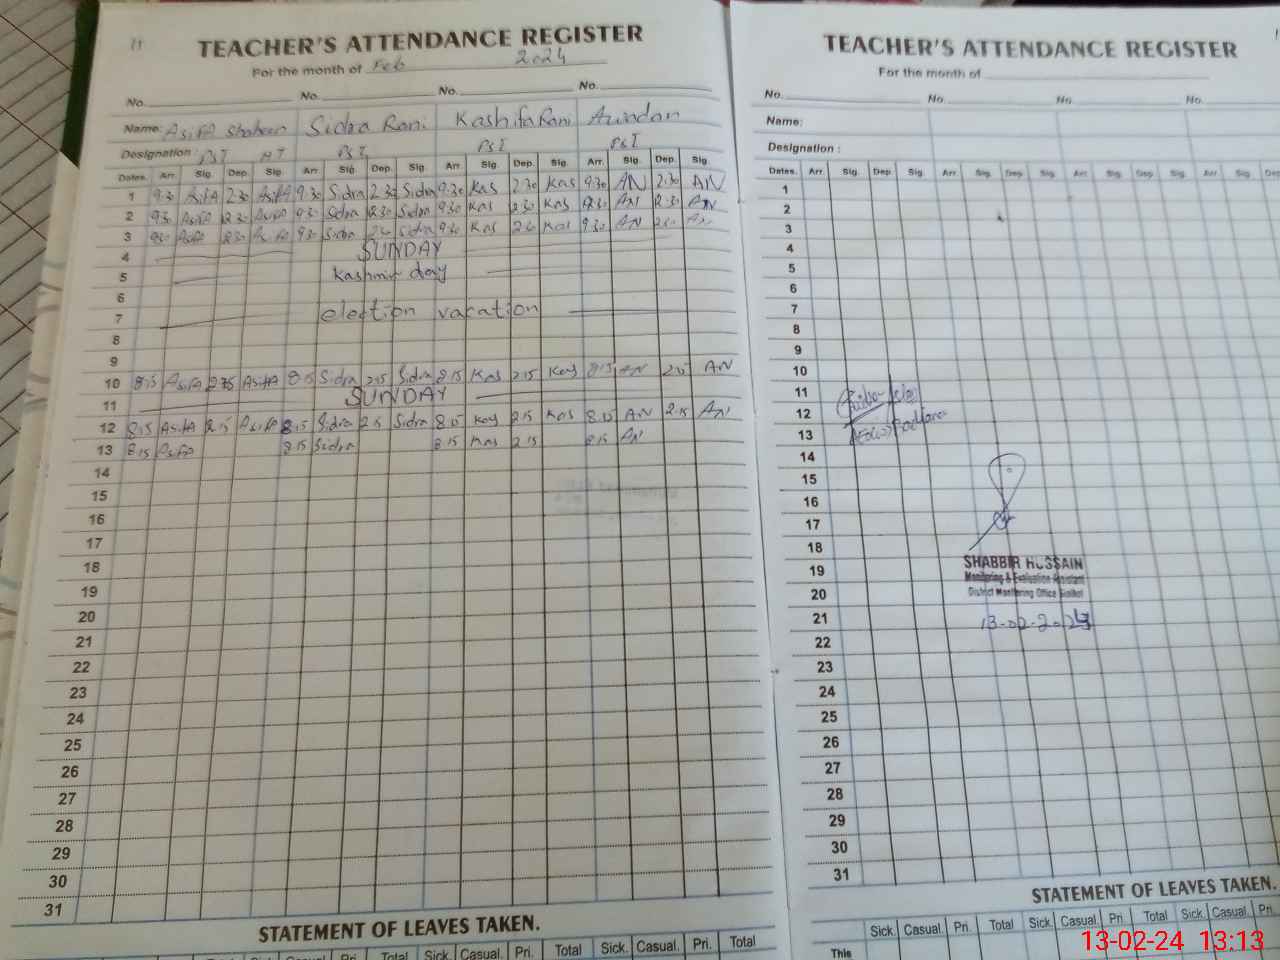 TEACHER'S ATTENDANCE REGISTER
For the month of Feb 2024
No. No. No. No.
Name: Asifa Shaheen Sidra Rani Kashifa Rani
Designation: PST HT PST PST PST
Dates. Arr. Sig. Dep. Sig. Arr. Sig. Dep. Sig. Arr. Sig. Dep. Sig. Arr. Sig. Dep. Sig.
1 9.30 Asifa 2.30 Asifa 9.30 Sidra 2.30 Sidra 9.30 Kas 2.30 Kas 9.30 AN 2.30 AN
2 9.30 Asifa 2.30 Asifa 9.30 Sidra 2.30 Sidra 9.30 Kas 2.30 Kas 9.30 AN 2.30 AN
3 9.30 Asifa 2.30 Asifa 9.30 Sidra Sidra 9.30 Kas Kas 9.30 AN AN
4 SUNDAY
5 Kashmir day
6
7 election vacation
8
9
10 8.15 Asifa 2.15 Asifa 8.15 Sidra 2.15 Sidra 8.15 Kas 2.15 Kas 8.15 AN AN
11 SUNDAY
12 8.15 Asifa 2.15 Asifa 8.15 Sidra 2.15 Sidra 8.15 Kas 2.15 Kas 8.15 AN 2.15 AN
13 8.15 Asifa 8.15 Sidra 8.15 Kas 2.15 8.15 AN
14
15
16
17
18
19
20
21
22
23
24
25
26
27
28
29
30
31
STATEMENT OF LEAVES TAKEN.
Casual. Pri. Total Sick. Casual. Pri. Total Sick. Casual. Pri. Total
TEACHER'S ATTENDANCE REGISTER
For the month of
No. No. No. No.
Name:
Designation :
Dates. Arr. Sig. Dep. Sig. Arr. Sig. Dep. Sig. Arr. Sig. Dep. Sig. Arr. Sig.
1
2
3
4
5
6
7
8
9
10
11
12
13
14
15
16
17
18
19
20
21
22
23
24
25
26
27
28
29
30
31
SHABBIR HUSSAIN
Monitoring & Evaluation Assistant
District Monitoring Office Sialkot
13-02-2024
STATEMENT OF LEAVES TAKEN.
Sick. Casual. Pri. Total Sick. Casual. Pri. Total Sick. Casual. Pri.
This
13-02-24 13:13